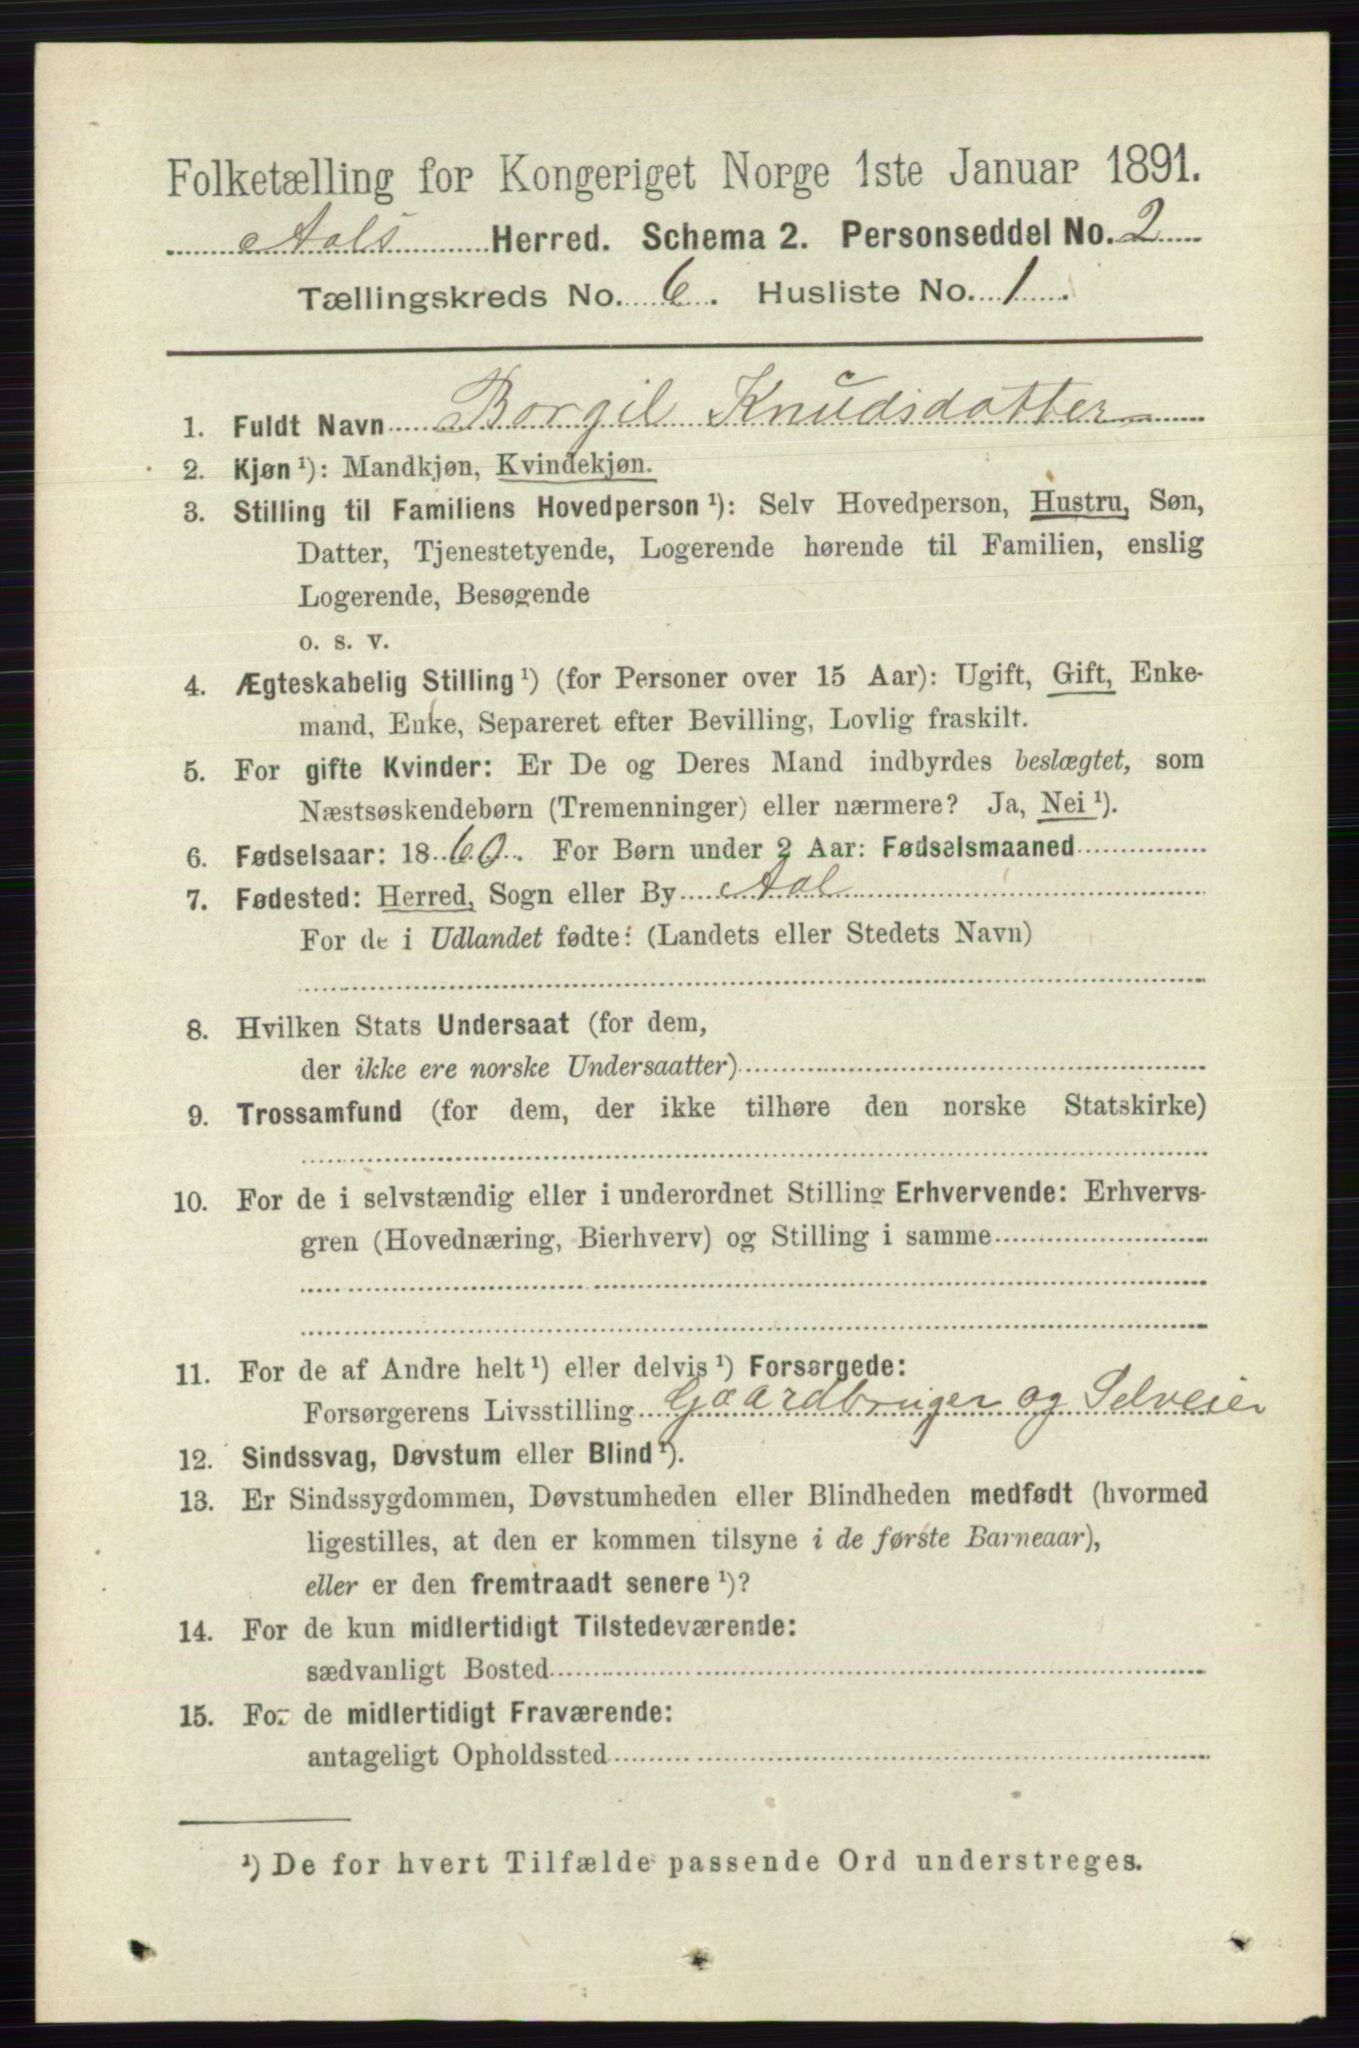 Folketælling for Kongeriget Norge 1ste Januar 1891.
Aals Herred. Schema 2. Personseddel No. 2
Tællingskreds No. 6. Husliste No. 1.
1. Fuldt Navn Borgil Knudsdatter
2. Kjøn ¹): Mandkjøn, Kvindekjøn.
3. Stilling til Familiens Hovedperson ¹): Selv Hovedperson, Hustru, Søn,
Datter, Tjenestetyende, Logerende hørende til Familien, enslig
Logerende, Besøgende
o. s. v.
4. Ægteskabelig Stilling ¹) (for Personer over 15 Aar): Ugift, Gift, Enke-
mand, Enke, Separeret efter Bevilling, Lovlig fraskilt.
5. For gifte Kvinder: Er De og Deres Mand indbyrdes beslægtet, som
Næstsøskendebørn (Tremenninger) eller nærmere? Ja, Nei ¹).
6. Fødselsaar: 1860. For Børn under 2 Aar: Fødselsmaaned
7. Fødested: Herred, Sogn eller By Aal
For de i Udlandet fødte: (Landets eller Stedets Navn)
8. Hvilken Stats Undersaat (for dem,
der ikke ere norske Undersaatter)
9. Trossamfund (for dem, der ikke tilhøre den norske Statskirke)
10. For de i selvstændig eller i underordnet Stilling Erhvervende: Erhvervs-
gren (Hovednæring, Bierhverv) og Stilling i samme
11. For de af Andre helt ¹) eller delvis ¹) Forsørgede:
Forsørgerens Livsstilling Gaardbruger og Selveier
12. Sindssvag, Døvstum eller Blind ¹).
13. Er Sindssygdommen, Døvstumheden eller Blindheden medfødt (hvormed
ligestilles, at den er kommen tilsyne i de første Barneaar),
eller er den fremtraadt senere ¹)?
14. For de kun midlertidigt Tilstedeværende:
sædvanligt Bosted
15. For de midlertidigt Fraværende:
antageligt Opholdssted
¹) De for hvert Tilfælde passende Ord understreges.